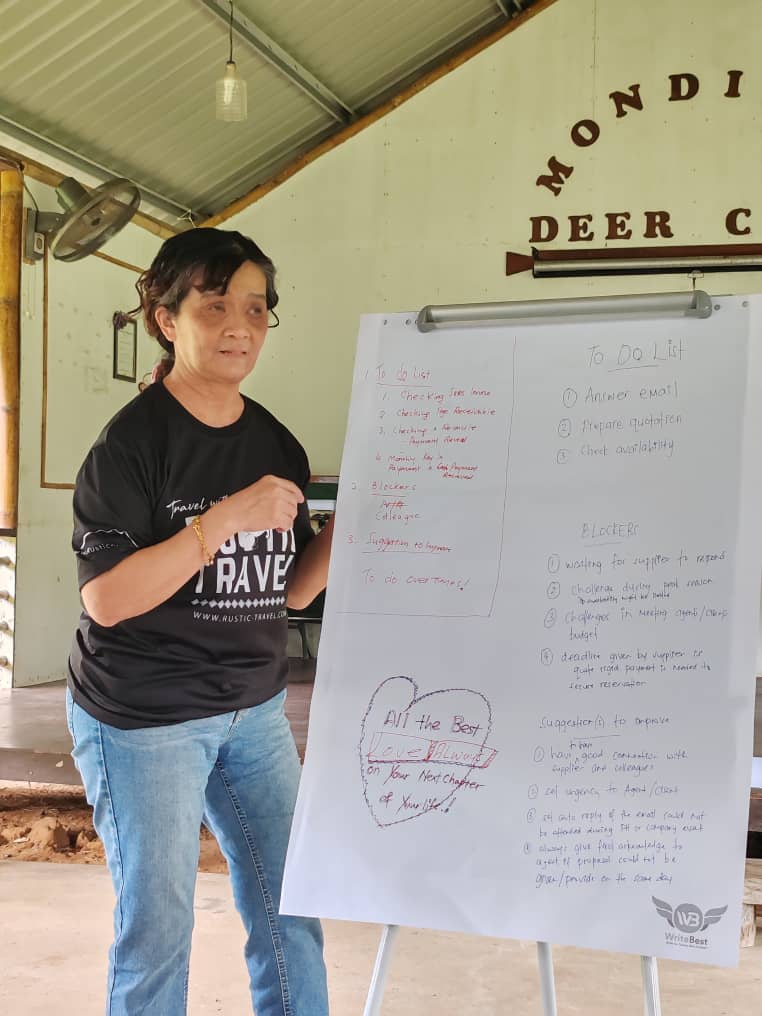 MONDI
DEER C
1. To do List
1. Checking
2. Checking Receivable
3. Checking &
Payment
4. Monthly Key in
Payment & Payment
Received
2. Blockers
Colleague
3. Suggestion to
To do overtimes!
All the Best
Love Always
on Your Next Chapter
of Your life!
To Do List
① Answer email
② Prepare quotation
③ Check availability
BLOCKERS
① waiting for supplier to respond
② challenge during peak season
③ challenges in meeting agent/client
budget
④ deadline given by supplier is
quite rigid, payment is needed to
secure reservation
Suggestion(s) to improve
① good with
supplier and colleagues
② set urgency to Agent/Client
③ set auto reply of the email could not
be attended during PH or company event
④ always give first acknowledge to
agent if proposal could not be
given/provide on the same day
WB
WriteBest
Travel with
TRAVEL
WWW.RUSTIC-TRAVEL.COM